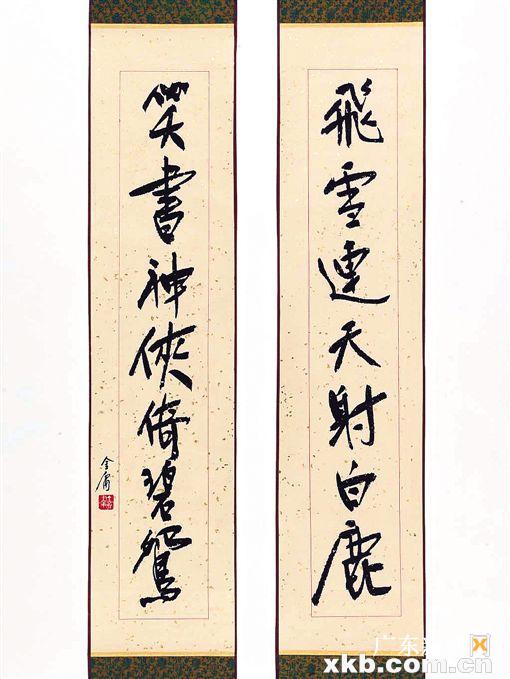 飛雪連天射白鹿
笑書神俠倚碧鴛
金庸
广东新
xkb.com.cn